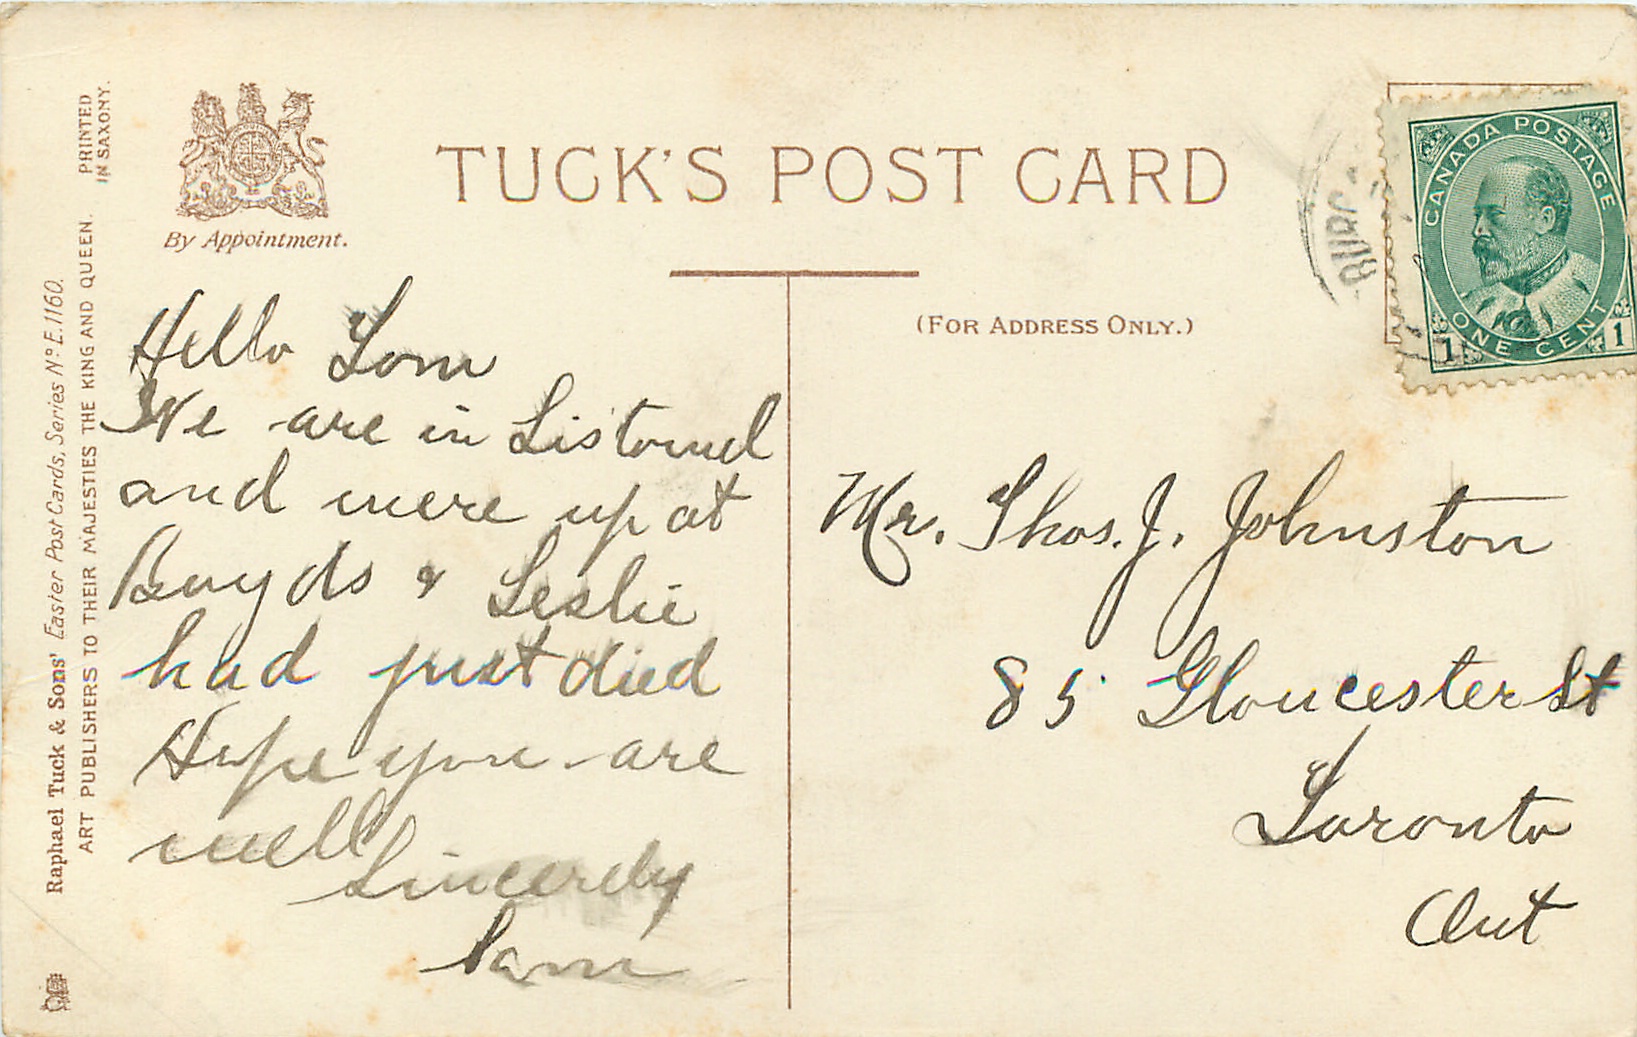 TUCK'S POST CARD
By Appointment.
(FOR ADDRESS ONLY.)
CANADA POSTAGE
ONE CENT
1 1
Raphael Tuck & Sons' Easter Post Cards, Series Nº E. 1160.
ART PUBLISHERS TO THEIR MAJESTIES THE KING AND QUEEN.
PRINTED
IN SAXONY.
Hello Tom
We are in Listowel
and were up at
Boyds & Leslie
had just died
Hope you are
well
Sincerely
Sam
Mr. Thos. J. Johnston
85 Gloucester St
Toronto
Ont